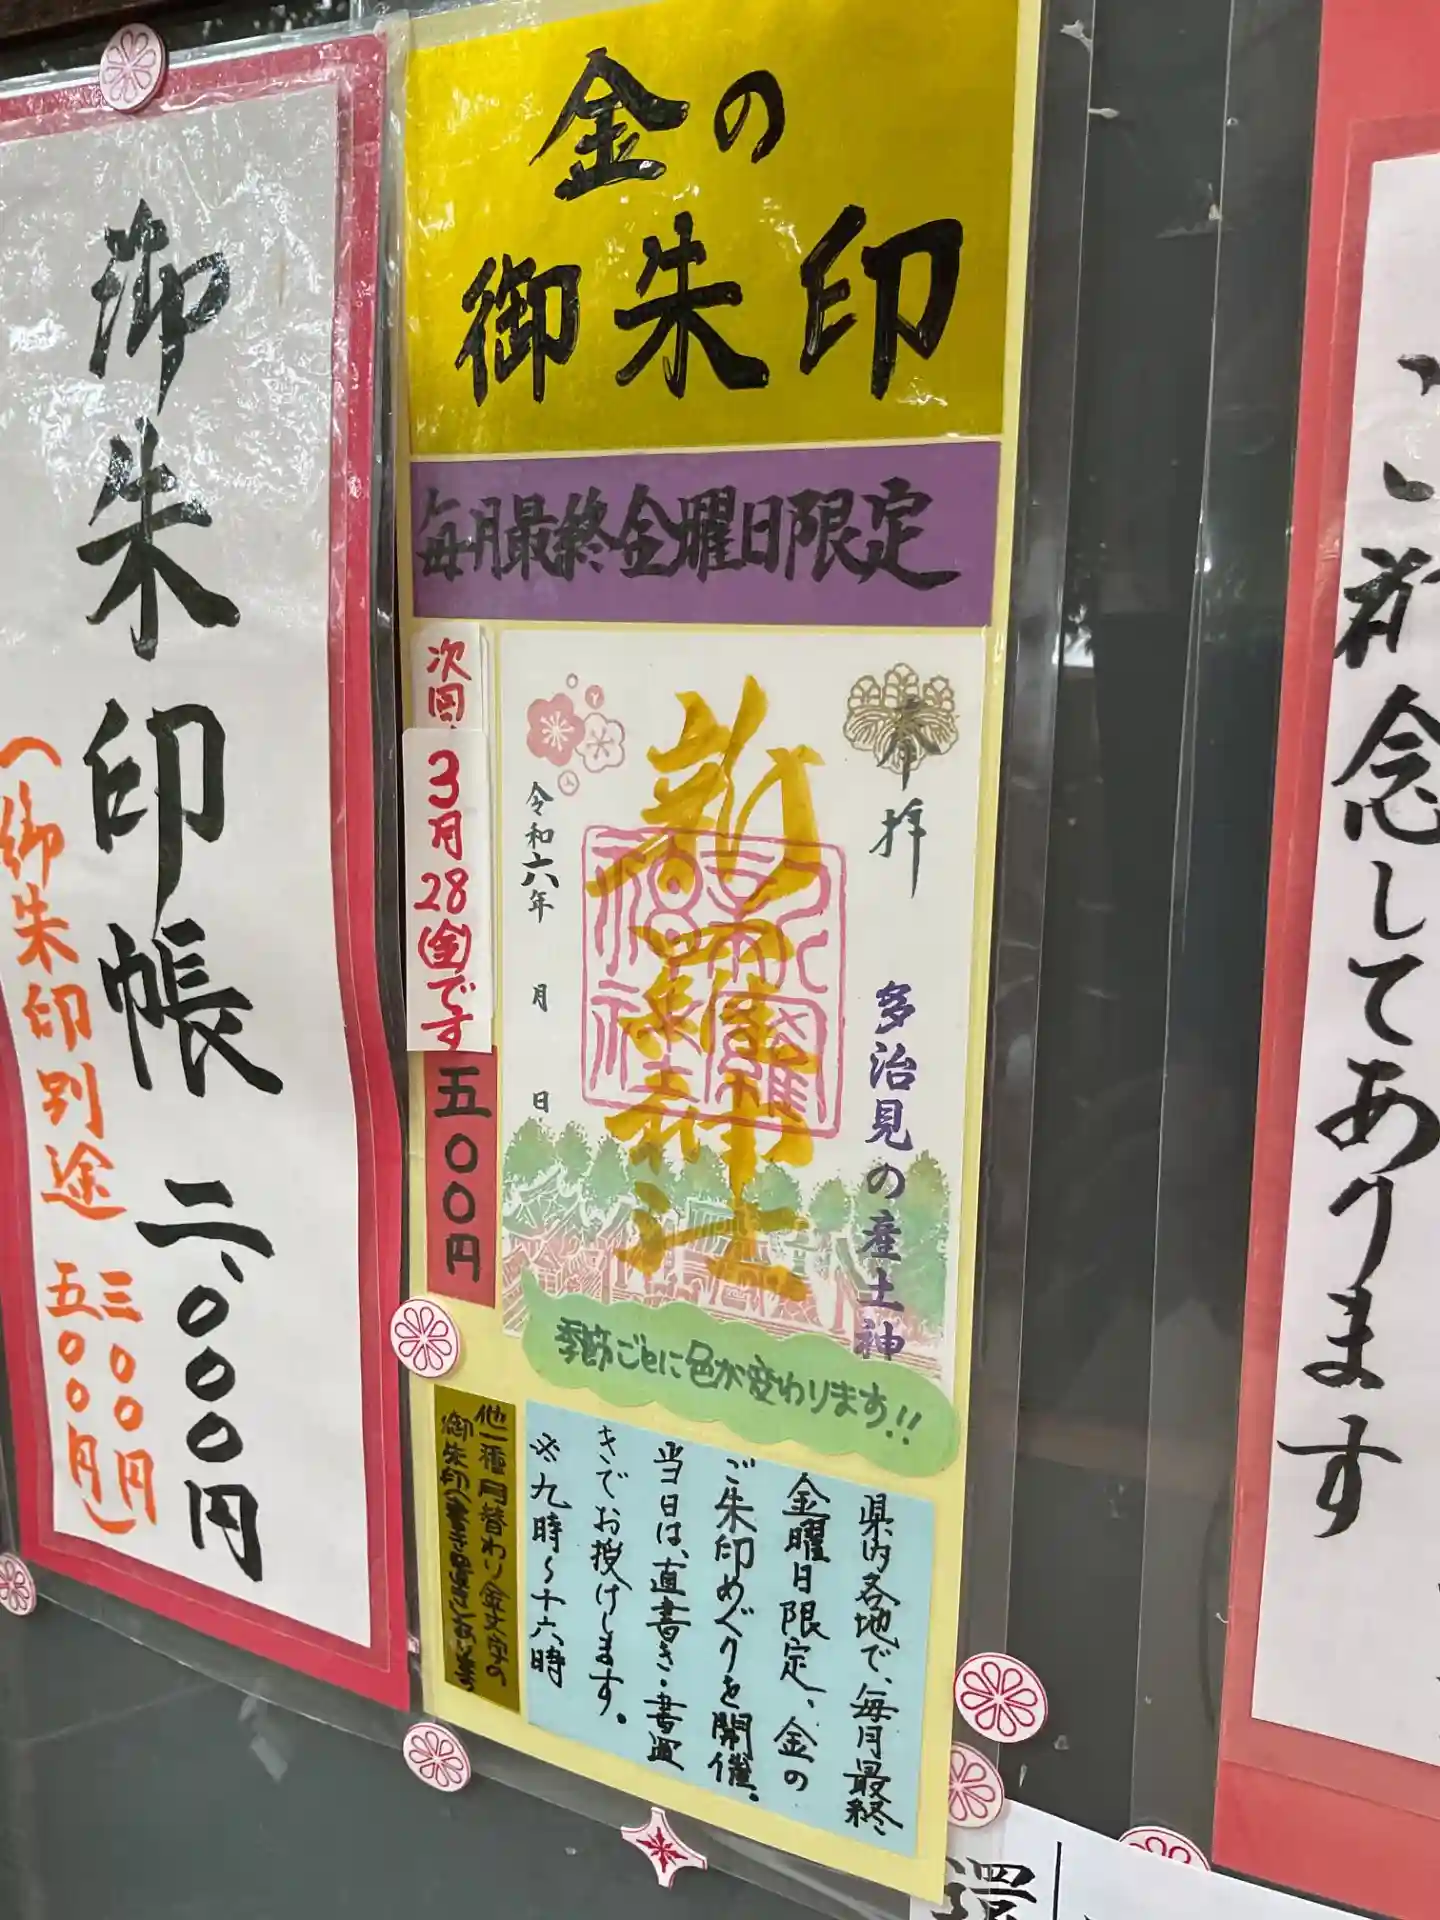 御朱印帳 二、〇〇〇円
(御朱印別途 三〇〇円
五〇〇円)
金の
御朱印
毎月最終金曜日限定
次回
3月28(金)です
五〇〇円
奉拝
多治見の産土神
新羅神社
令和六年 月 日
季節ごとに色が変わります!!
県内各地で、毎月最終
金曜日限定、金の
ご朱印めぐりを開催。
当日は、直書き・書置
きでお授けします。
※九時~十六時
他一種月替わり金文字の
御朱印(書き置き)あります
祈念してあります